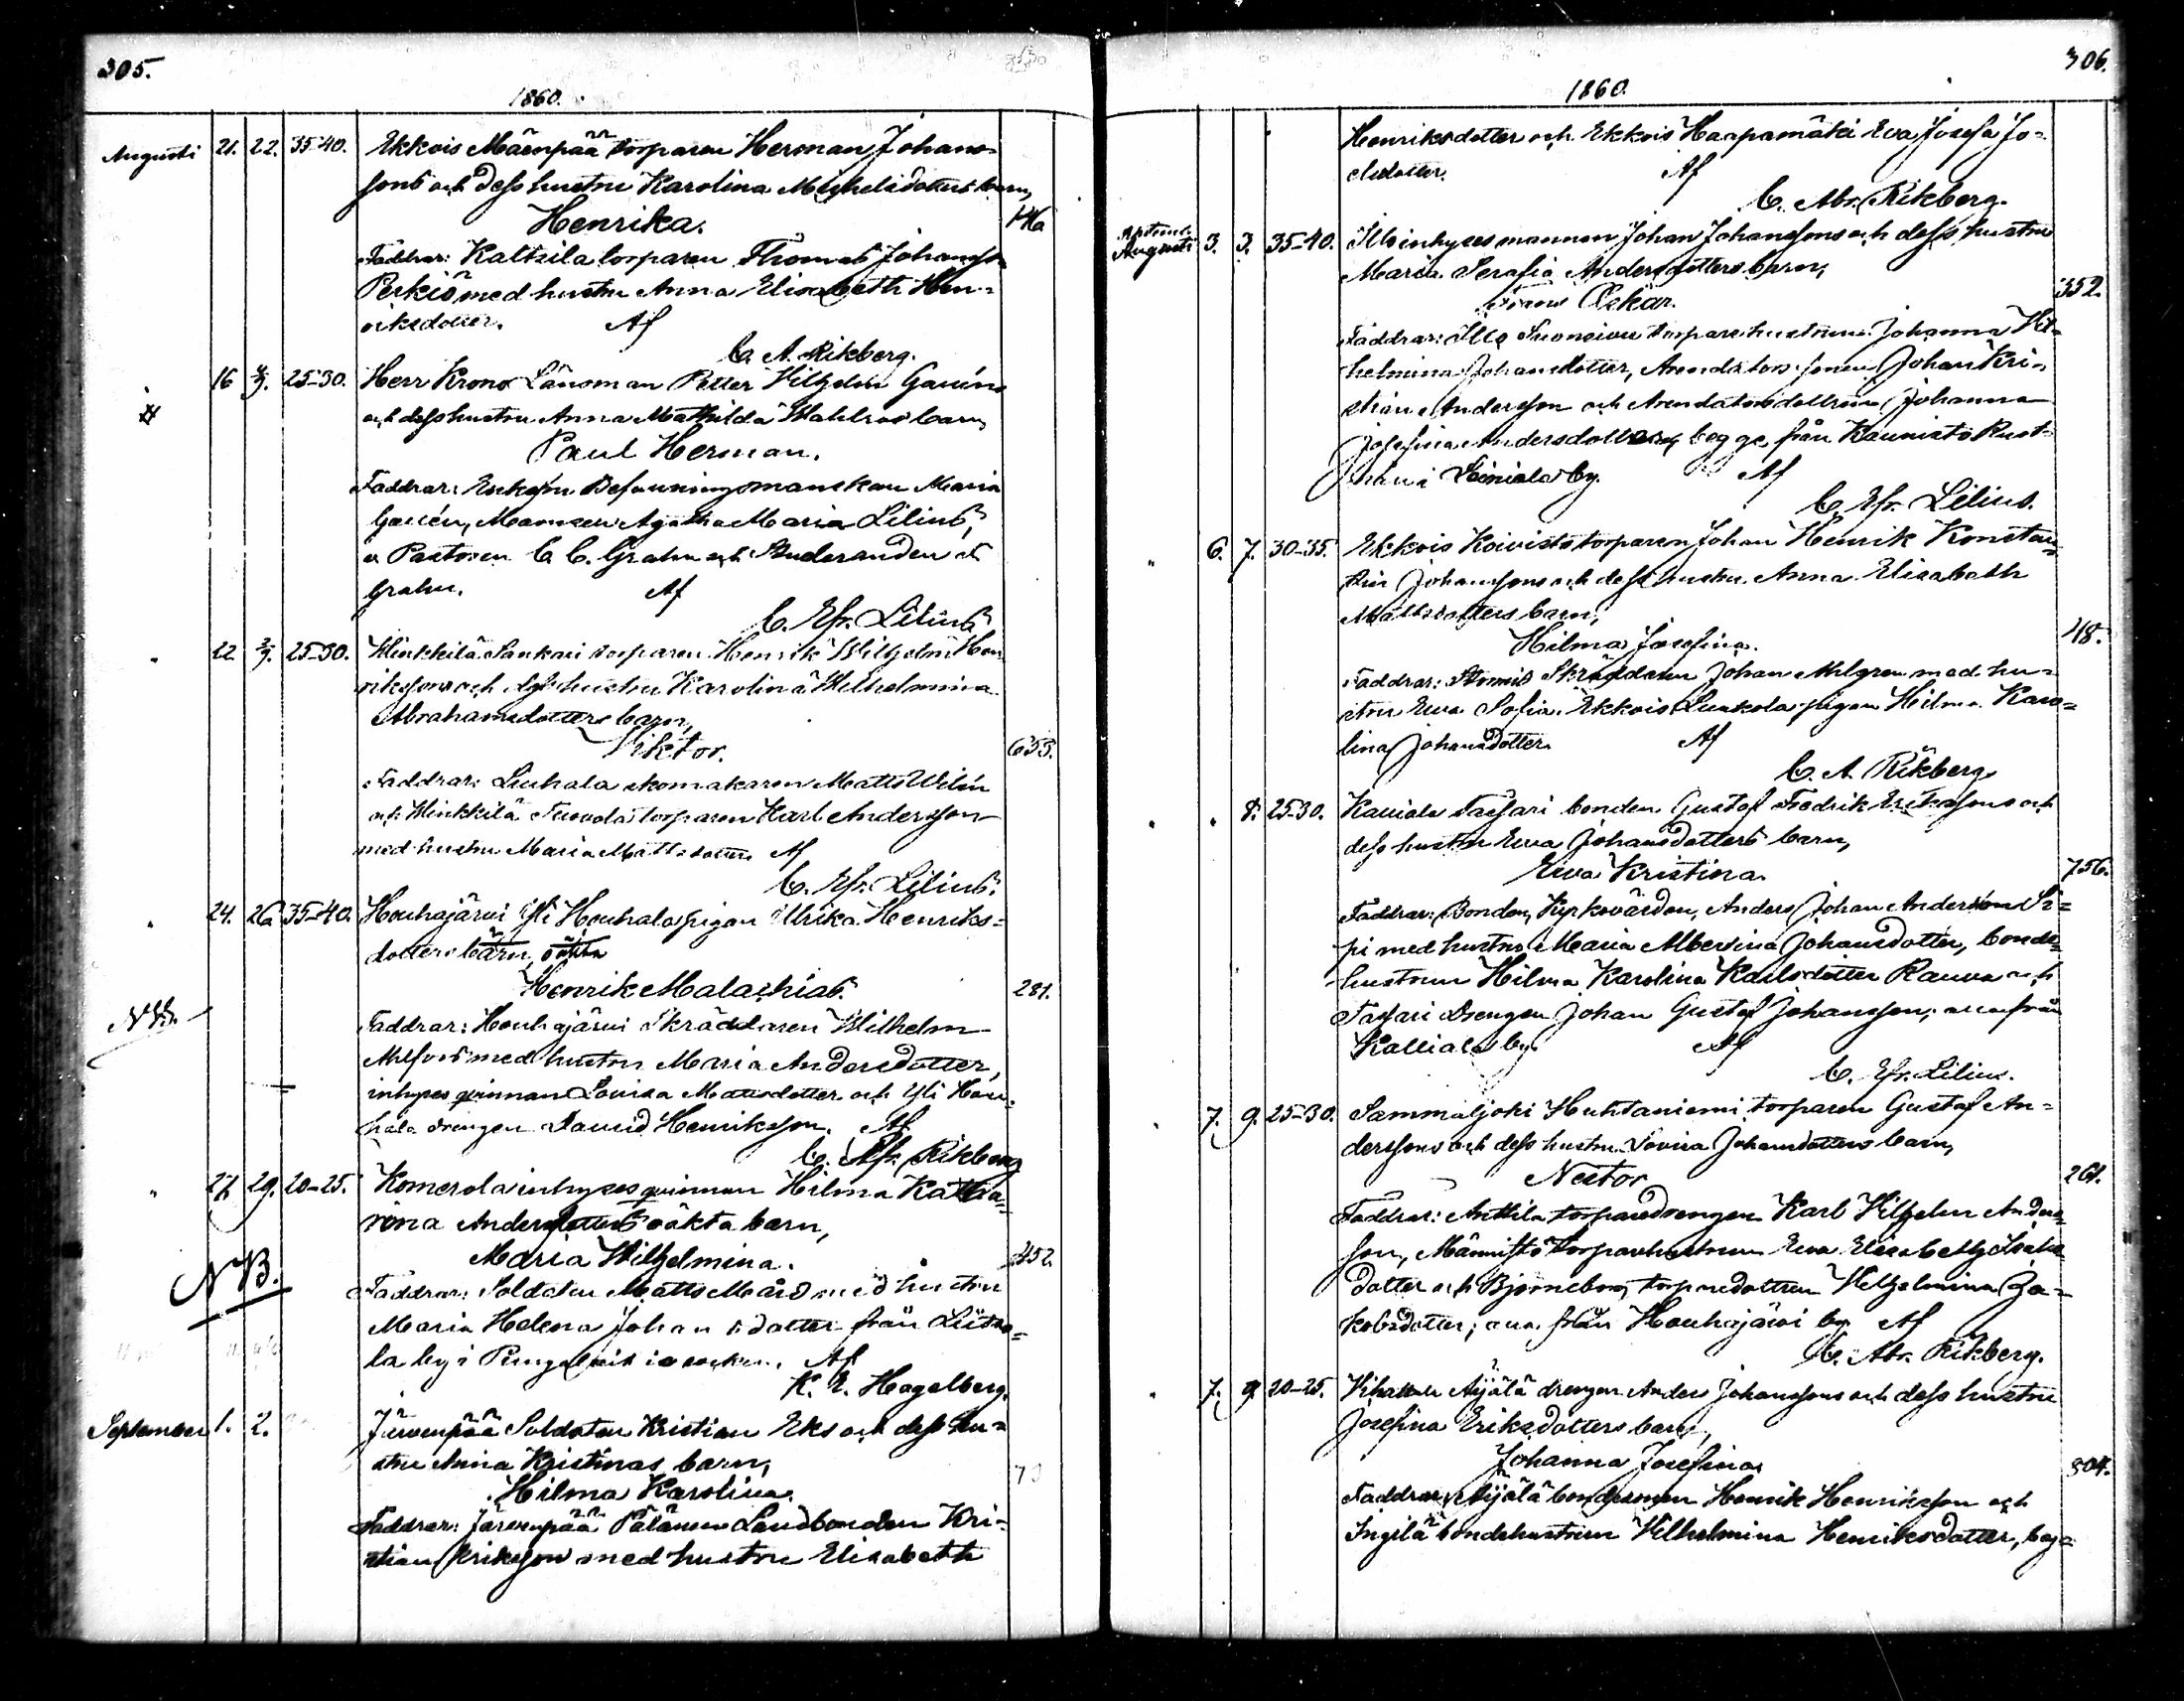 305.
1860.
Augusti 21. 22. 35-40. Ekkois Mäenpää torparen Herman Johans-
sons och dess hustru Karolina Michelsdotters barn,
Henrika. 146
Faddrar: Kaltsila torparen Thomas Johansson
Perkiö med hustru Anna Elisabeth Hen-
riksdotter. Af
C. A. Rikberg.
16 2/9. 25-30. Herr Krono Länsman Petter Vilhelm Gauéns
och dess hustru Anna Mathilda Wahlroos barn,
Paul Herman.
Faddrar: Enkefru Befallningsmanskan Maria
Gauén, Mamsell Agatha Maria Lilius,
v Pastoren C. C. Grahn och Studeranden
Grahn. Af
C. Efr. Lilius.
" 22 2/9. 25-30. Hinkkilä Sankari torparen Henrik Wilhelm Hen-
rikssons och dess hustru Karolina Wilhelmina
Abrahamsdotters barn,
Viktor. 653.
Faddrar: Liuhala skomakaren Matts Wilén
och Hinkkilä Tuovola torparen Karl Andersson
med hustru Maria Mattsdotter Af
C. Efr. Lilius.
" 24. 26 35-40. Houhajärvi Yli Houhala pigan Ulrika Henriks-
dotters barn, oäkta
Henrik Malachias. 281.
NB.
Faddrar: Houhajärvi Skräddaren Wilhelm
Ahlfors med hustru Maria Andersdotter,
inhyses qvinnan Lovisa Mattsdotter och Yli Hou-
hala drengen David Henriksson. Af
C. Abr. Rikberg
" 27. 29. 20-25. Komerola inhyses qvinnan Hilma Katha-
rina Andersdotters oäkta barn,
Maria Wilhelmina. 452.
NB.
Faddrar: Soldaten Matts Mård med hustru
Maria Helena Johansdotter från Liitso-
la by i Pungalaitio socken. Af
K. E. Hagelberg.
September 1. 2. Järvenpää Soldaten Kristian Eks och dess hu-
stru Anna Kristinas barn,
Hilma Karolina.
Faddrar: Järvenpää Pälänen Landbonden Kri-
stian Eriksson med hustru Elisabeth
306.
1860.
Henriksdotter och Ekkois Haapamäki Eva Josefa Jo-
elsdotter. Af
C. Abr. Rikberg.
Septemb.
Augusti 3. 3. 35-40. Illo inhysesmannen Johan Johanssons och dess hustru
Maria Serafia Andersdotters barn,
Frans Oskar. 352.
Faddrar: Illo Suonsivu torparehustrun Johanna Vil-
helmina Johansdotter, Arendators sonen Johan Kri-
stian Andersson och Arendatorsdottren Johanna
Josefina Andersdotter, begge från Kaunisto Rust-
håll i by. Af
C. Efr. Lilius.
" 6. 7. 30-35. Ekkois Koivisto torparen Johan Henrik Konstan-
tin Johanssons och dess hustru Anna Elisabeth
Mattsdotters barn,
Hilma Josefina. 48.
Faddrar: Stormis Skräddaren Johan Ahlgren med hu-
stru Eva Sofia. Ekkois Luukola pigan Hilma Karo-
lina Johansdotter. Af
C. A. Rikberg
" " 8. 25-30. Kauiala Tassari bonden Gustaf Fredrik Erikssons och
dess hustru Eva Johansdotters barn,
Eva Kristina. 756.
Faddrar: Bonden, Kyrkovärden, Anders Johan Andersson Si-
pi med hustru Maria Albertina Johansdotter, bonde-
hustrun Hilma Karolina Karlsdotter Rauva och
Tassari Drengen Johan Gustaf Johansson; alla från
Kalliala by. Af
C. Efr. Lilius.
" 7. 9. 25-30. Sammaljoki Huhtaniemi torparen Gustaf An-
derssons och dess hustru Lovisa Johansdotters barn,
Nestor 261.
Faddrar: Anttila torparedrengen Karl Vilhelm Anders-
son, Männistö torparehustrun Eva Elisabeth Isaks-
dotter och Björneborg torparedottren Vilhelmina Ja-
kobsdotter; alla från Houhajärvi by. Af
C. Abr. Rikberg.
" 7. 9 20-25. Vihattula Äijälä drengen Anders Johanssons och dess hustru
Josefina Eriksdotters barn,
Johanna Josefina. 804.
Faddrar: Äijälä bondesonen Henrik Henriksson och
Ingilä bondehustrun Vilhelmina Henriksdotter, beg-